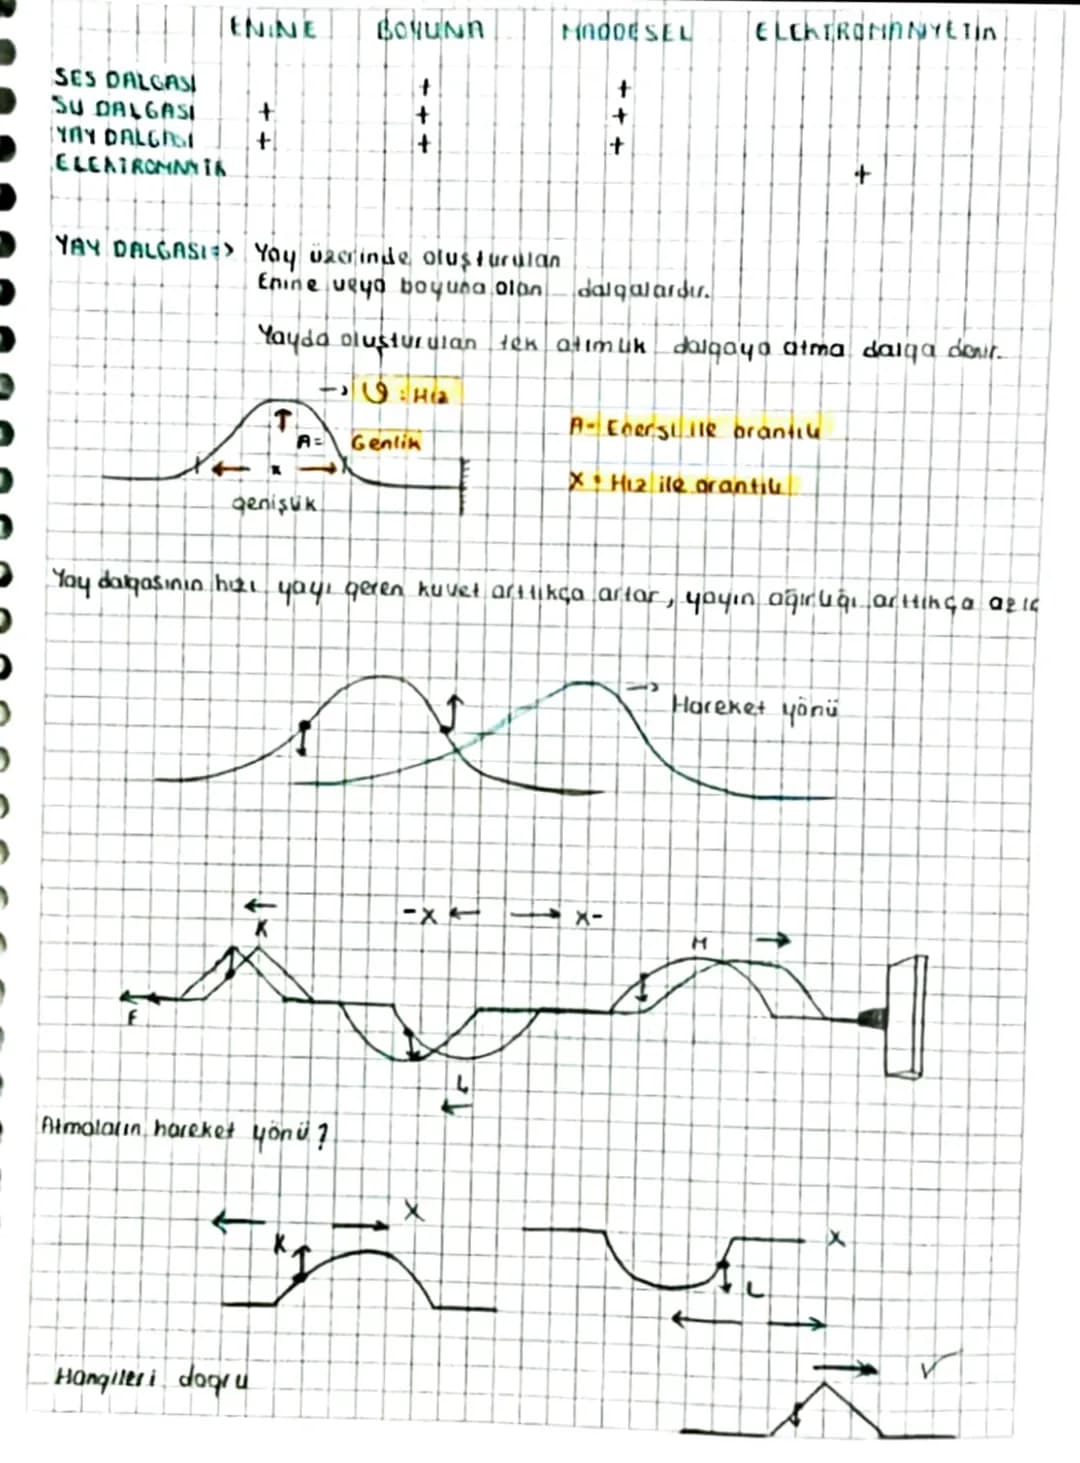 ENİNE BOYUNA MADDESEL ELEKTROMANYETİK
SES DALGASI + +
SU DALGASI + + +
YAY DALGASI + + +
ELEKTROMNYTK +
YAY DALGASI => Yay üzerinde oluşturulan
Enine veya boyuna olan dalgalardır.
Yayda oluşturulan tek atımlık dalgaya atma dalga denir.
→ υ : Hız
A = Genlik
A = Enersi ile orantılı
x
X : Hız ile orantılı
genişlik
Yay dalgasının hızı yayı geren kuvet arttıkça artar, yayın ağırlığı arttıkça azlr
→ Hareket yönü
← -X ← → X-
K M →
F
L
←
Atmaların hareket yönü?
← → X
K X
L
← →
Hangileri dogru → ✓